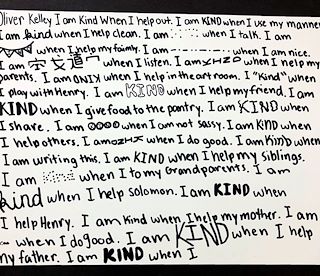 Oliver Kelley I am Kind When I help out. I am KIND when I use my manners
I am kind when I help clean. I am when I talk. I am
when I help my faimly. I am when I am nice.
I am when I listen. I am when I help my
parents. I am ONIX when I help in the art room. I "Kind" when
I play with Henry. I am KIND when I help my friend. I am
KIND when I give food to the pantry. I am KIND when
I share. I am when I am not sassy. I am KIND when
I help others. I am when I do good. I am Kind when
I am writing this. I am KIND when I help my siblings.
I am when I to my Grandparents. I am
kind when I help solomon. I am KIND when
I help Henry. I am Kind when I help my mother. I am
when I do good. I am KIND when I help
my father. I am KIND when I